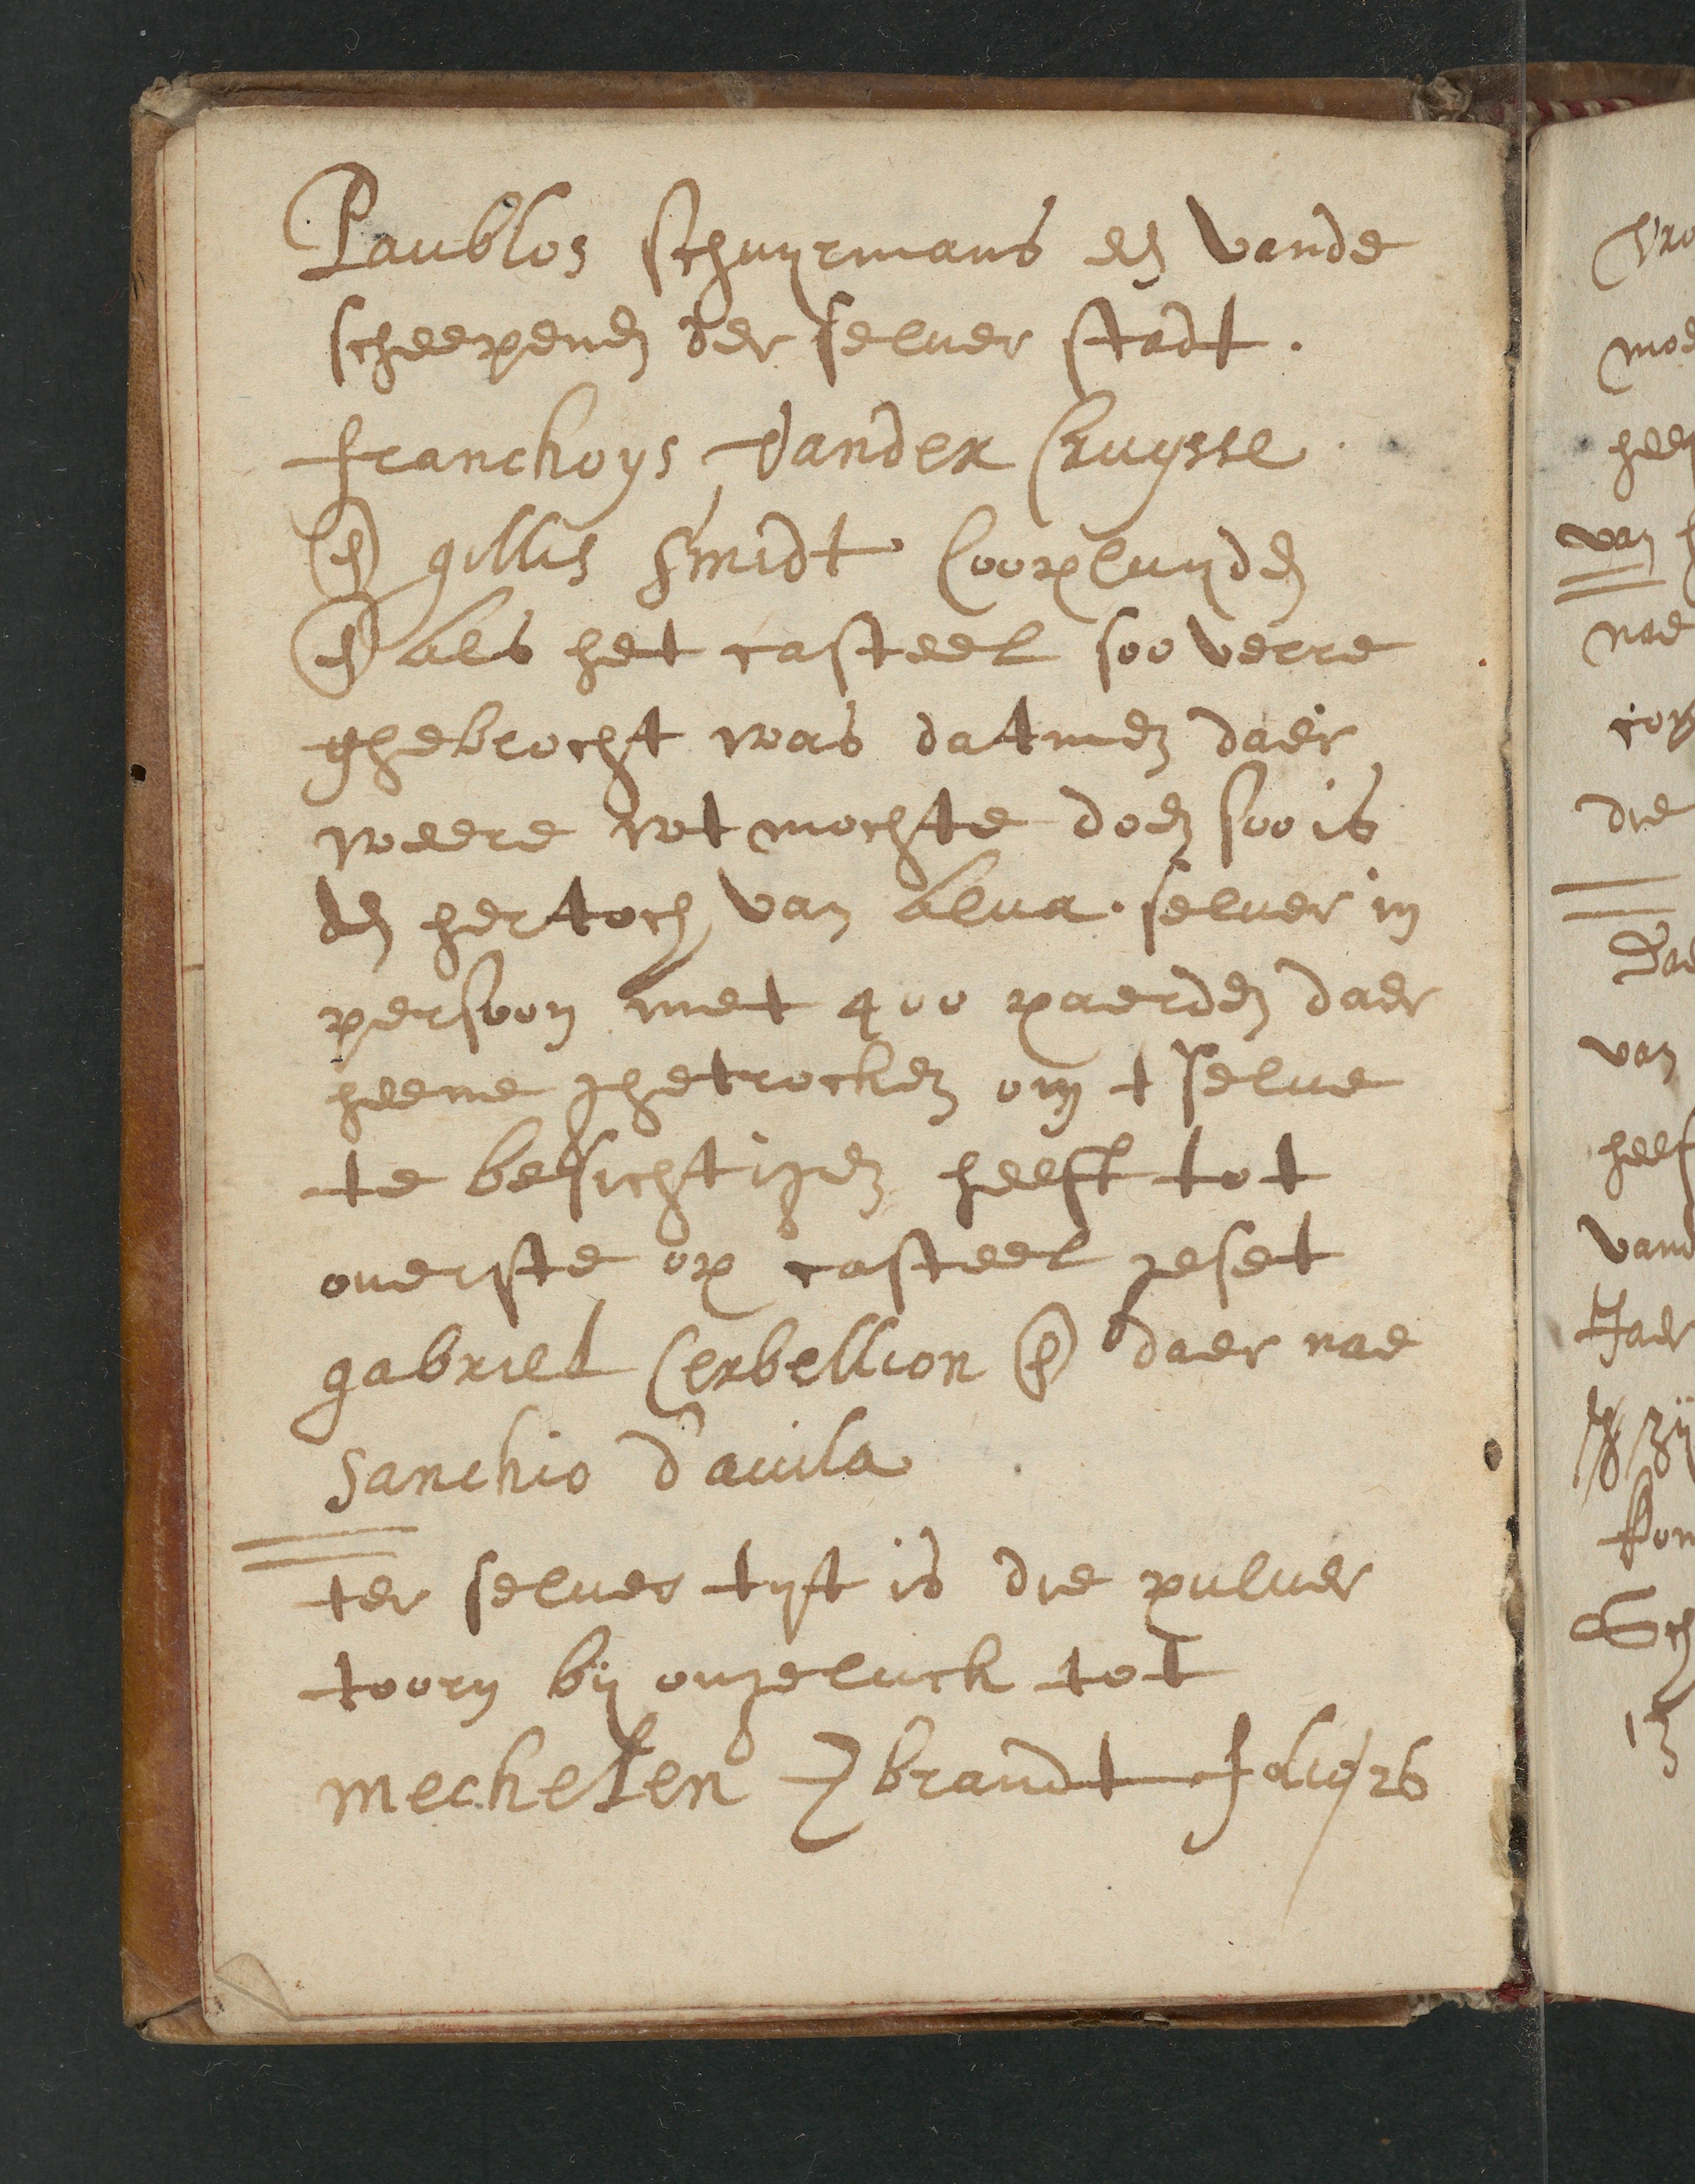 Paublos schuyrmans en vande
scheepenen der seluer stadt.
franchoys Vander Cruysse
en gillis smidt Cooplunden
en als het casteel soo verre
ghebrocht was datmen daer
weere wt mochte doen soo is
den hertoch van alua. seluer in
persoon met 400 paerden daer
heene ghetrocken om t selue
te besichtigen heeft tot
ouerste op casteel geset
gabriel Cerbellion en daer nae
Sanchio d'auila
ter seluer tyt is die puluer
toorn by ongeluck tot
mechelen brandt folio 26
van
nae
die
van